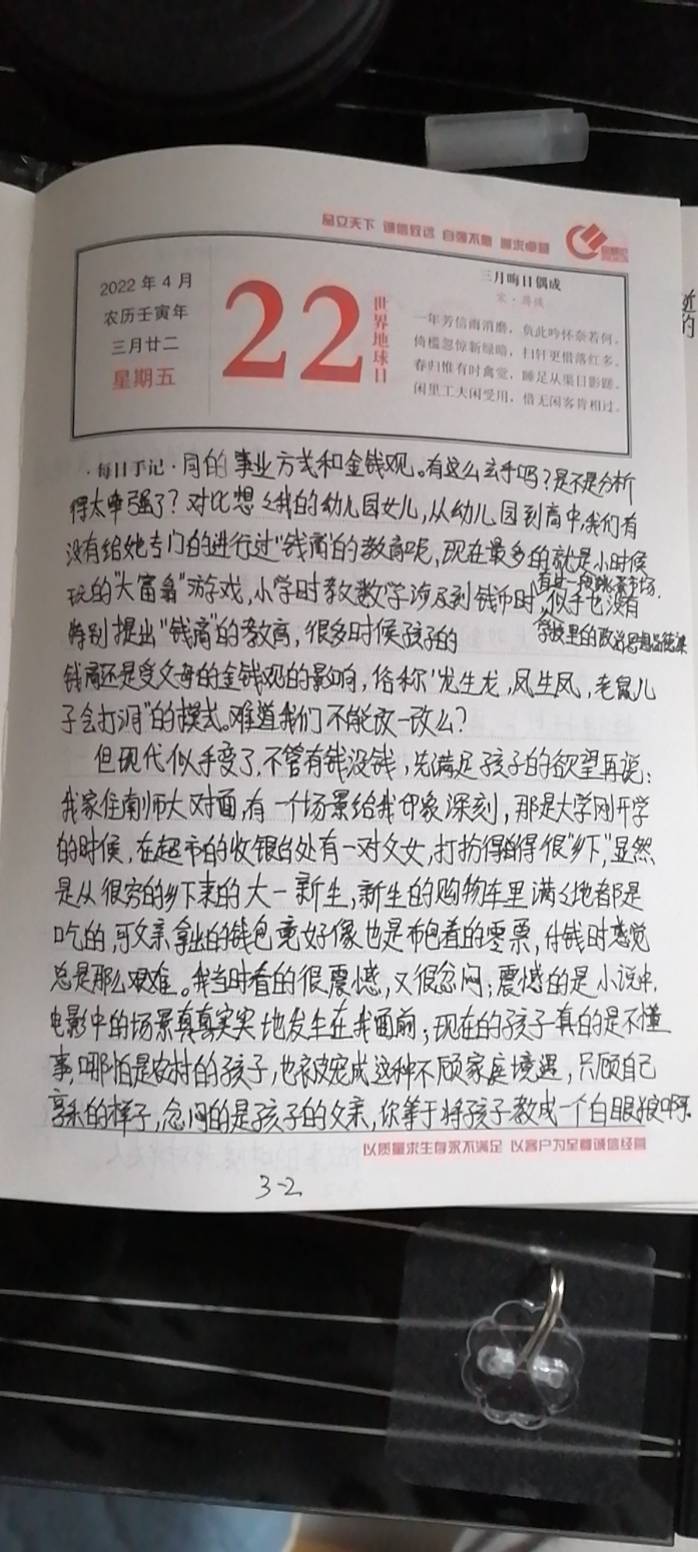 品立天下 诚信致远 自强不息 追求卓越
2022年4月
农历壬寅年
三月廿二
星期五
22
世界地球日
三月晦日偶成
宋·
一年芳信雨消磨，负此吟怀奈若何。
倚槛忽惊新绿暗，扫轩更惜落红多。
春归惟有时禽觉，睡足从渠日影蹉。
闲里工夫闲受用，惜无闲客肯相过。
·每日手记·同的事业方式和金钱观。有这么玄乎吗？是不是分析
得太牵强了？对比想想我的幼儿园女儿，从幼儿园到高中，我们有
没有给她专门的进行过"钱商"的教育呢，现在最多的就是小时候
玩的"大富翁"游戏，小学时教数学涉及到钱币时，似乎也没有
有过一段跳蚤市场，
特别提出"钱商"的教育，很多时候孩子的
学校里的政治思想品德课
钱商还是受父母的金钱观的影响，俗称'龙生龙，凤生凤，老鼠儿
子会打洞"的模式。难道我们不能改一改么？
但现代似乎变了，不管有钱没钱，先满足孩子的欲望再说：
我家住南师大对面，有一个场景给我印象深刻，那是大学刚开学
的时候，在超市的收银台处有一对父女，打扮得很"乡下"，显然
是从很穷的乡下来的大一新生，新生的购物车里满满地都是
吃的，可父亲拿出的钱包竟好像也是布包着的零票，付钱时感觉
总是那么艰难。我当时看的很震憾，又很忿闷；震憾的是小说中，
电影中的场景真真实实地发生在我面前；现在的孩子真的是不懂
事，哪怕是农村的孩子，也被宠成这种不顾家庭境遇，只顾自己
享乐的样子，忿闷的是孩子的父亲，你等于将孩子教成一个白眼狼啊！
以质量求生存永不满足 以客户为至尊诚信经营
3-2
近
的